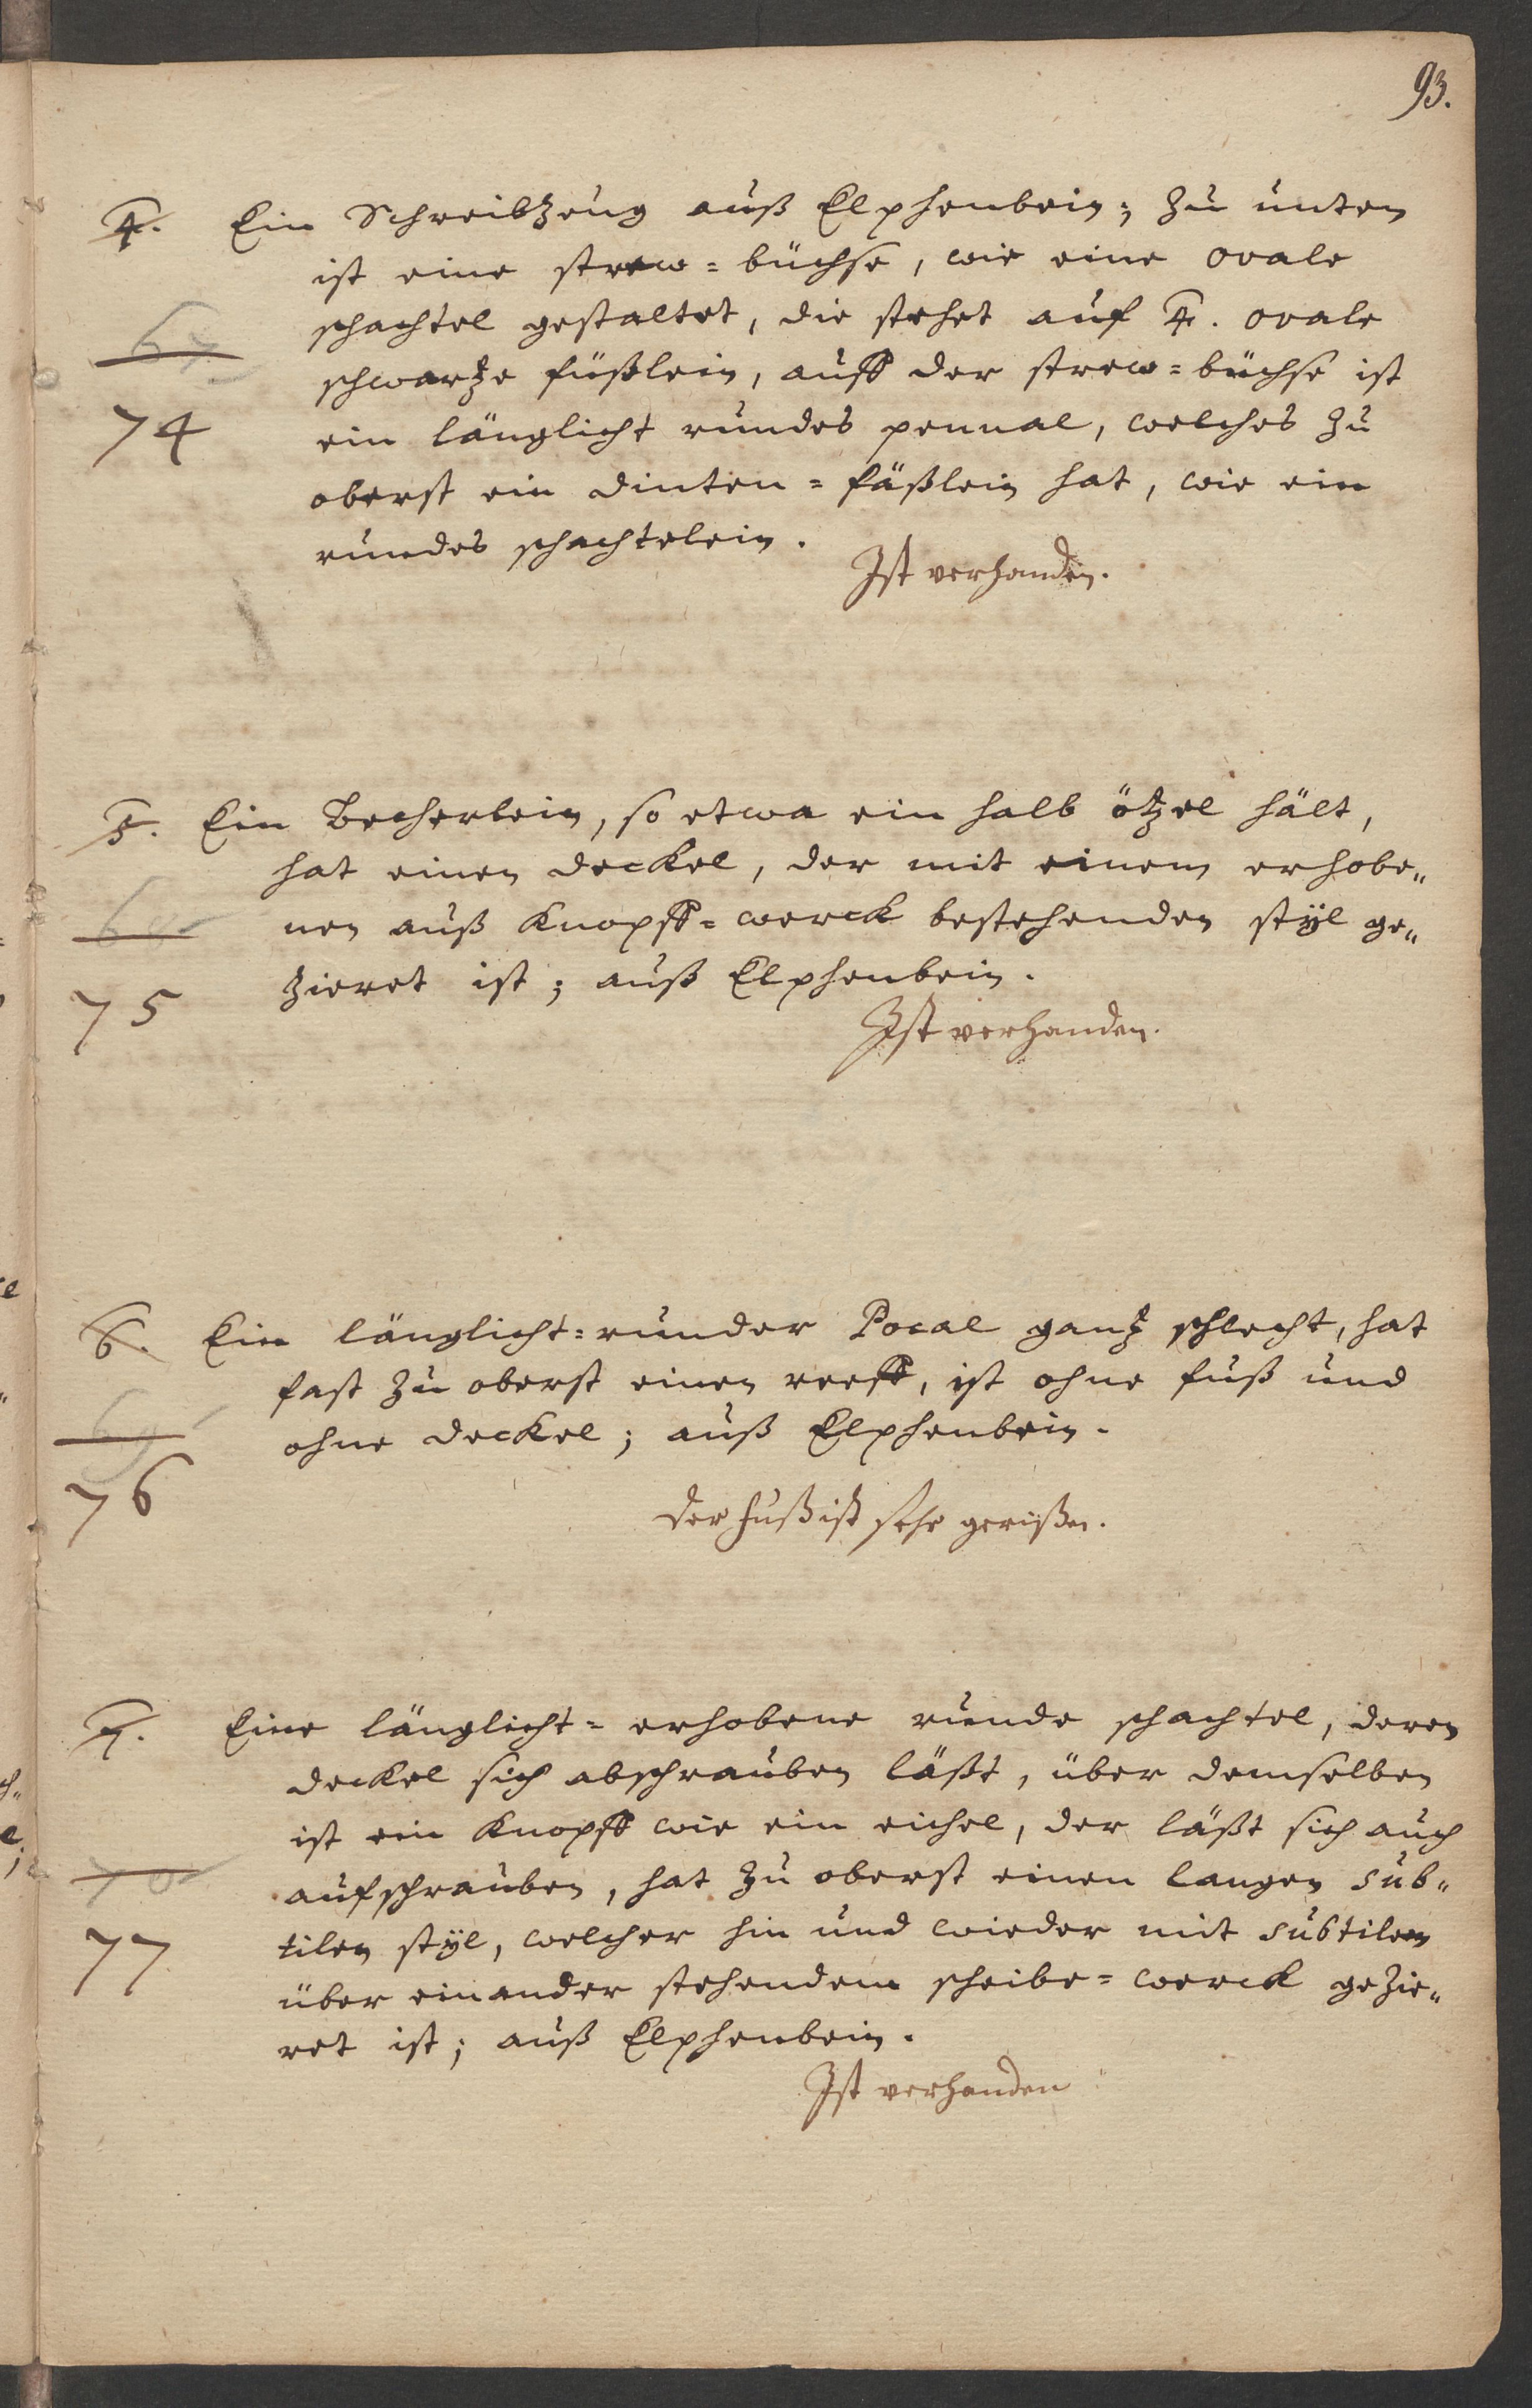 93.
4. Ein Schreibzeug auß Elphenbein; zu unten
ist eine strew=büchse, wie eine ovale
schachtel gestaltet, die stehet auf 4. ovale
67
schwartze füßlein, auff der strew=büchse ist
74
ein länglicht rundes pennal, welches zu
oberst ein dinten=fäßlein hat, wie ein
rundes schachtelein.
Ist verhanden.
5. Ein Becherlein, so etwa ein halb ötzel hält,
hat einen deckel, der mit einem erhobe„
68
nen auß Knopff=werck bestehenden stÿl ge„
75
zieret ist; auß Elphenbein.
Ist verhanden.
6. Ein länglicht=runder Pocal gantz schlecht, hat
fast zu oberst einen reeff, ist ohne fuß und
69
ohne deckel; auß Elphenbein.
76
Der Fuß ist sehr gerißen.
7. Eine länglicht=erhobene runde schachtel, deren
deckel sich abschrauben läßt, über demselben
ist ein Knopff wie ein eichel, der läßt sich auch
70
aufschrauben, hat zu oberst einen langen sub„
77
tilen stÿl, welcher hin und wieder mit subtilem
über einander stehendem scheibe=werck gezie„
ret ist; auß Elphenbein.
Ist verhanden